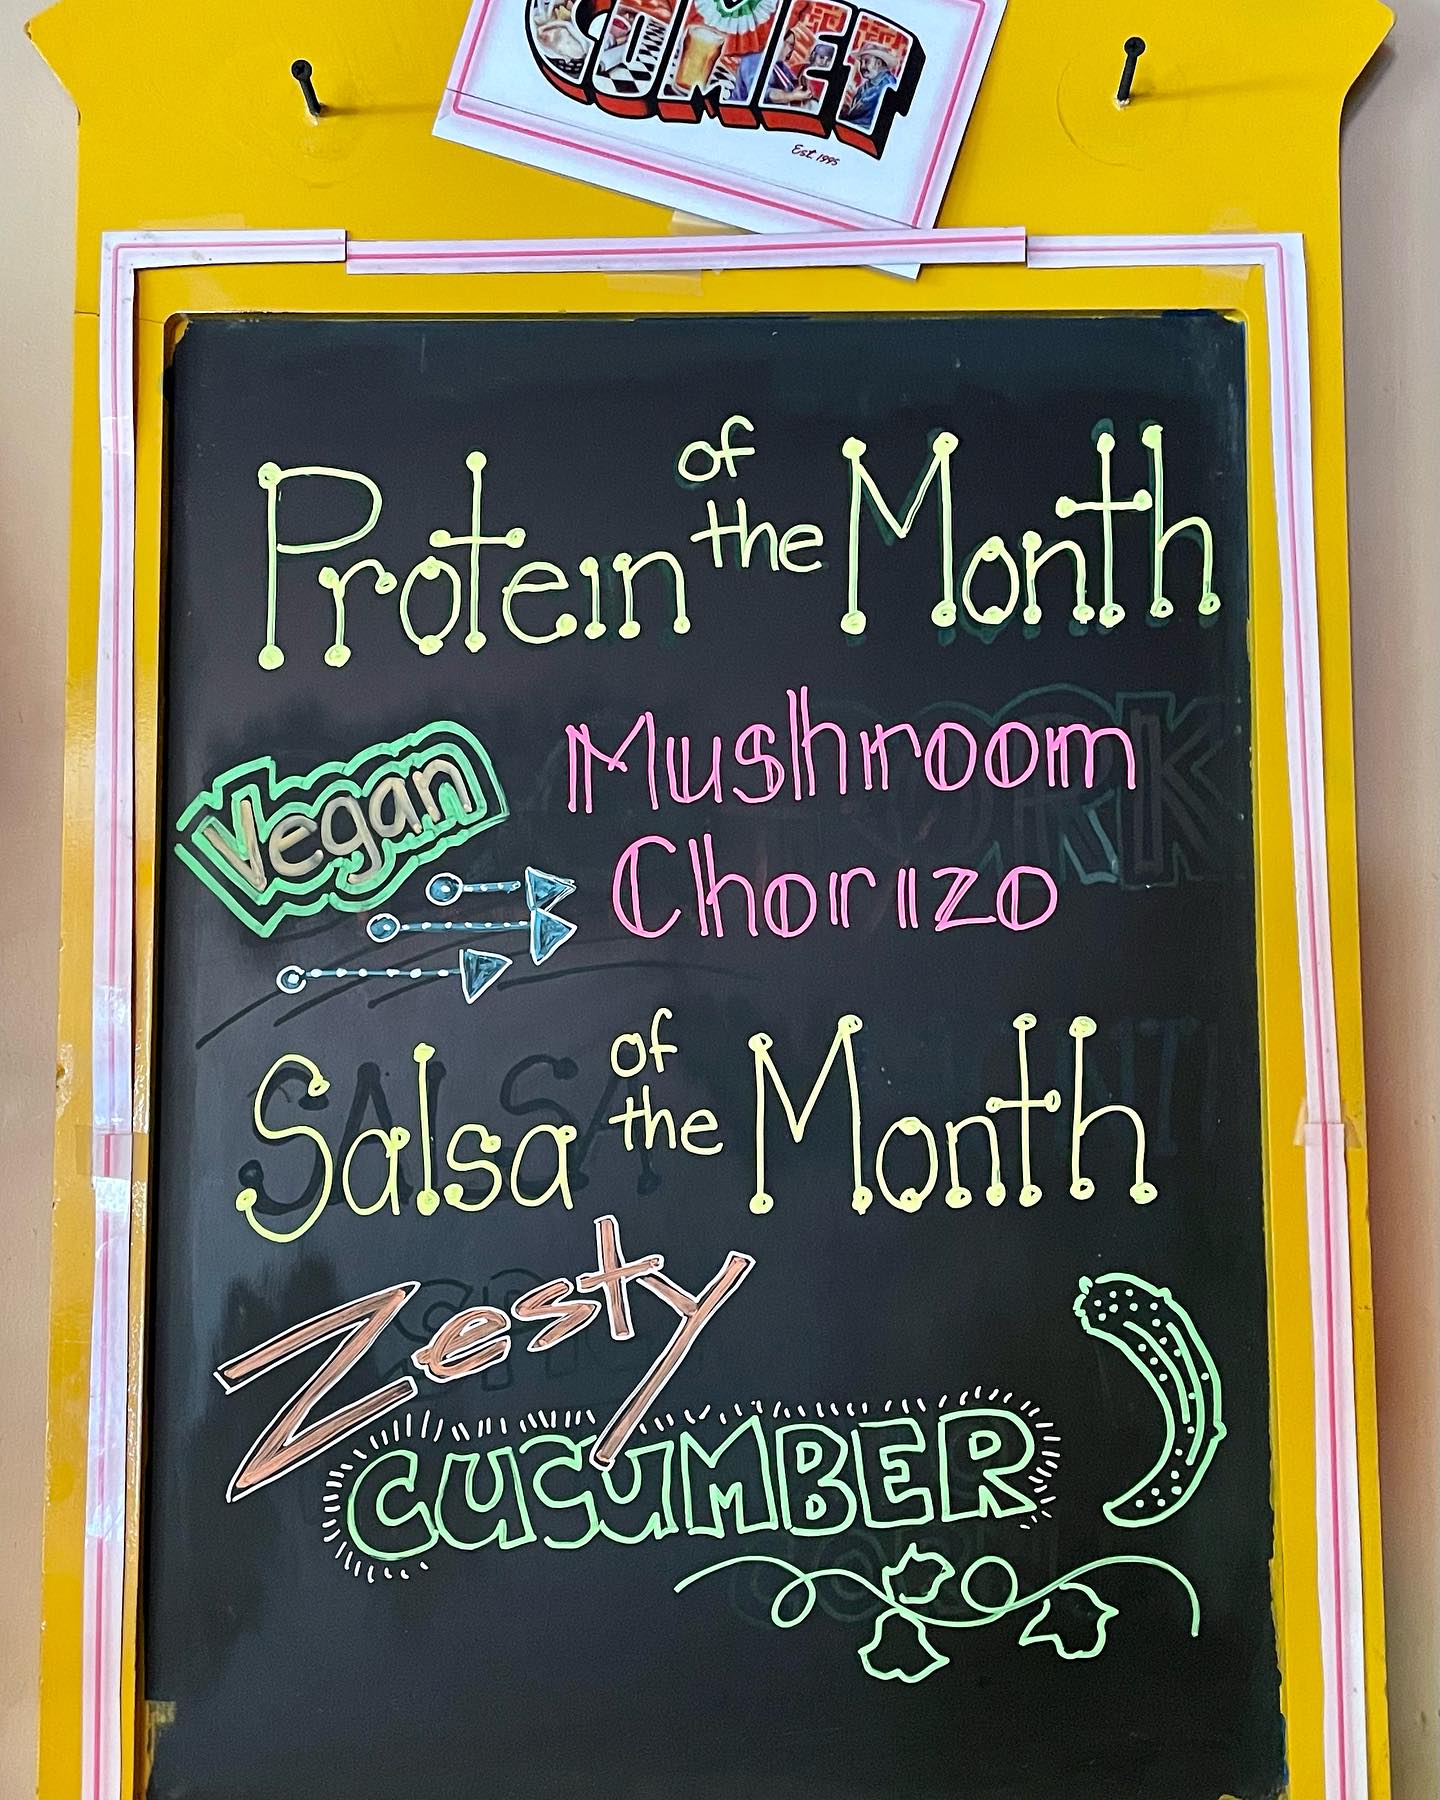 COMET
Est. 1995
Protein of the Month
Vegan
Mushroom
Chorizo
Salsa of the Month
Zesty
CUCUMBER